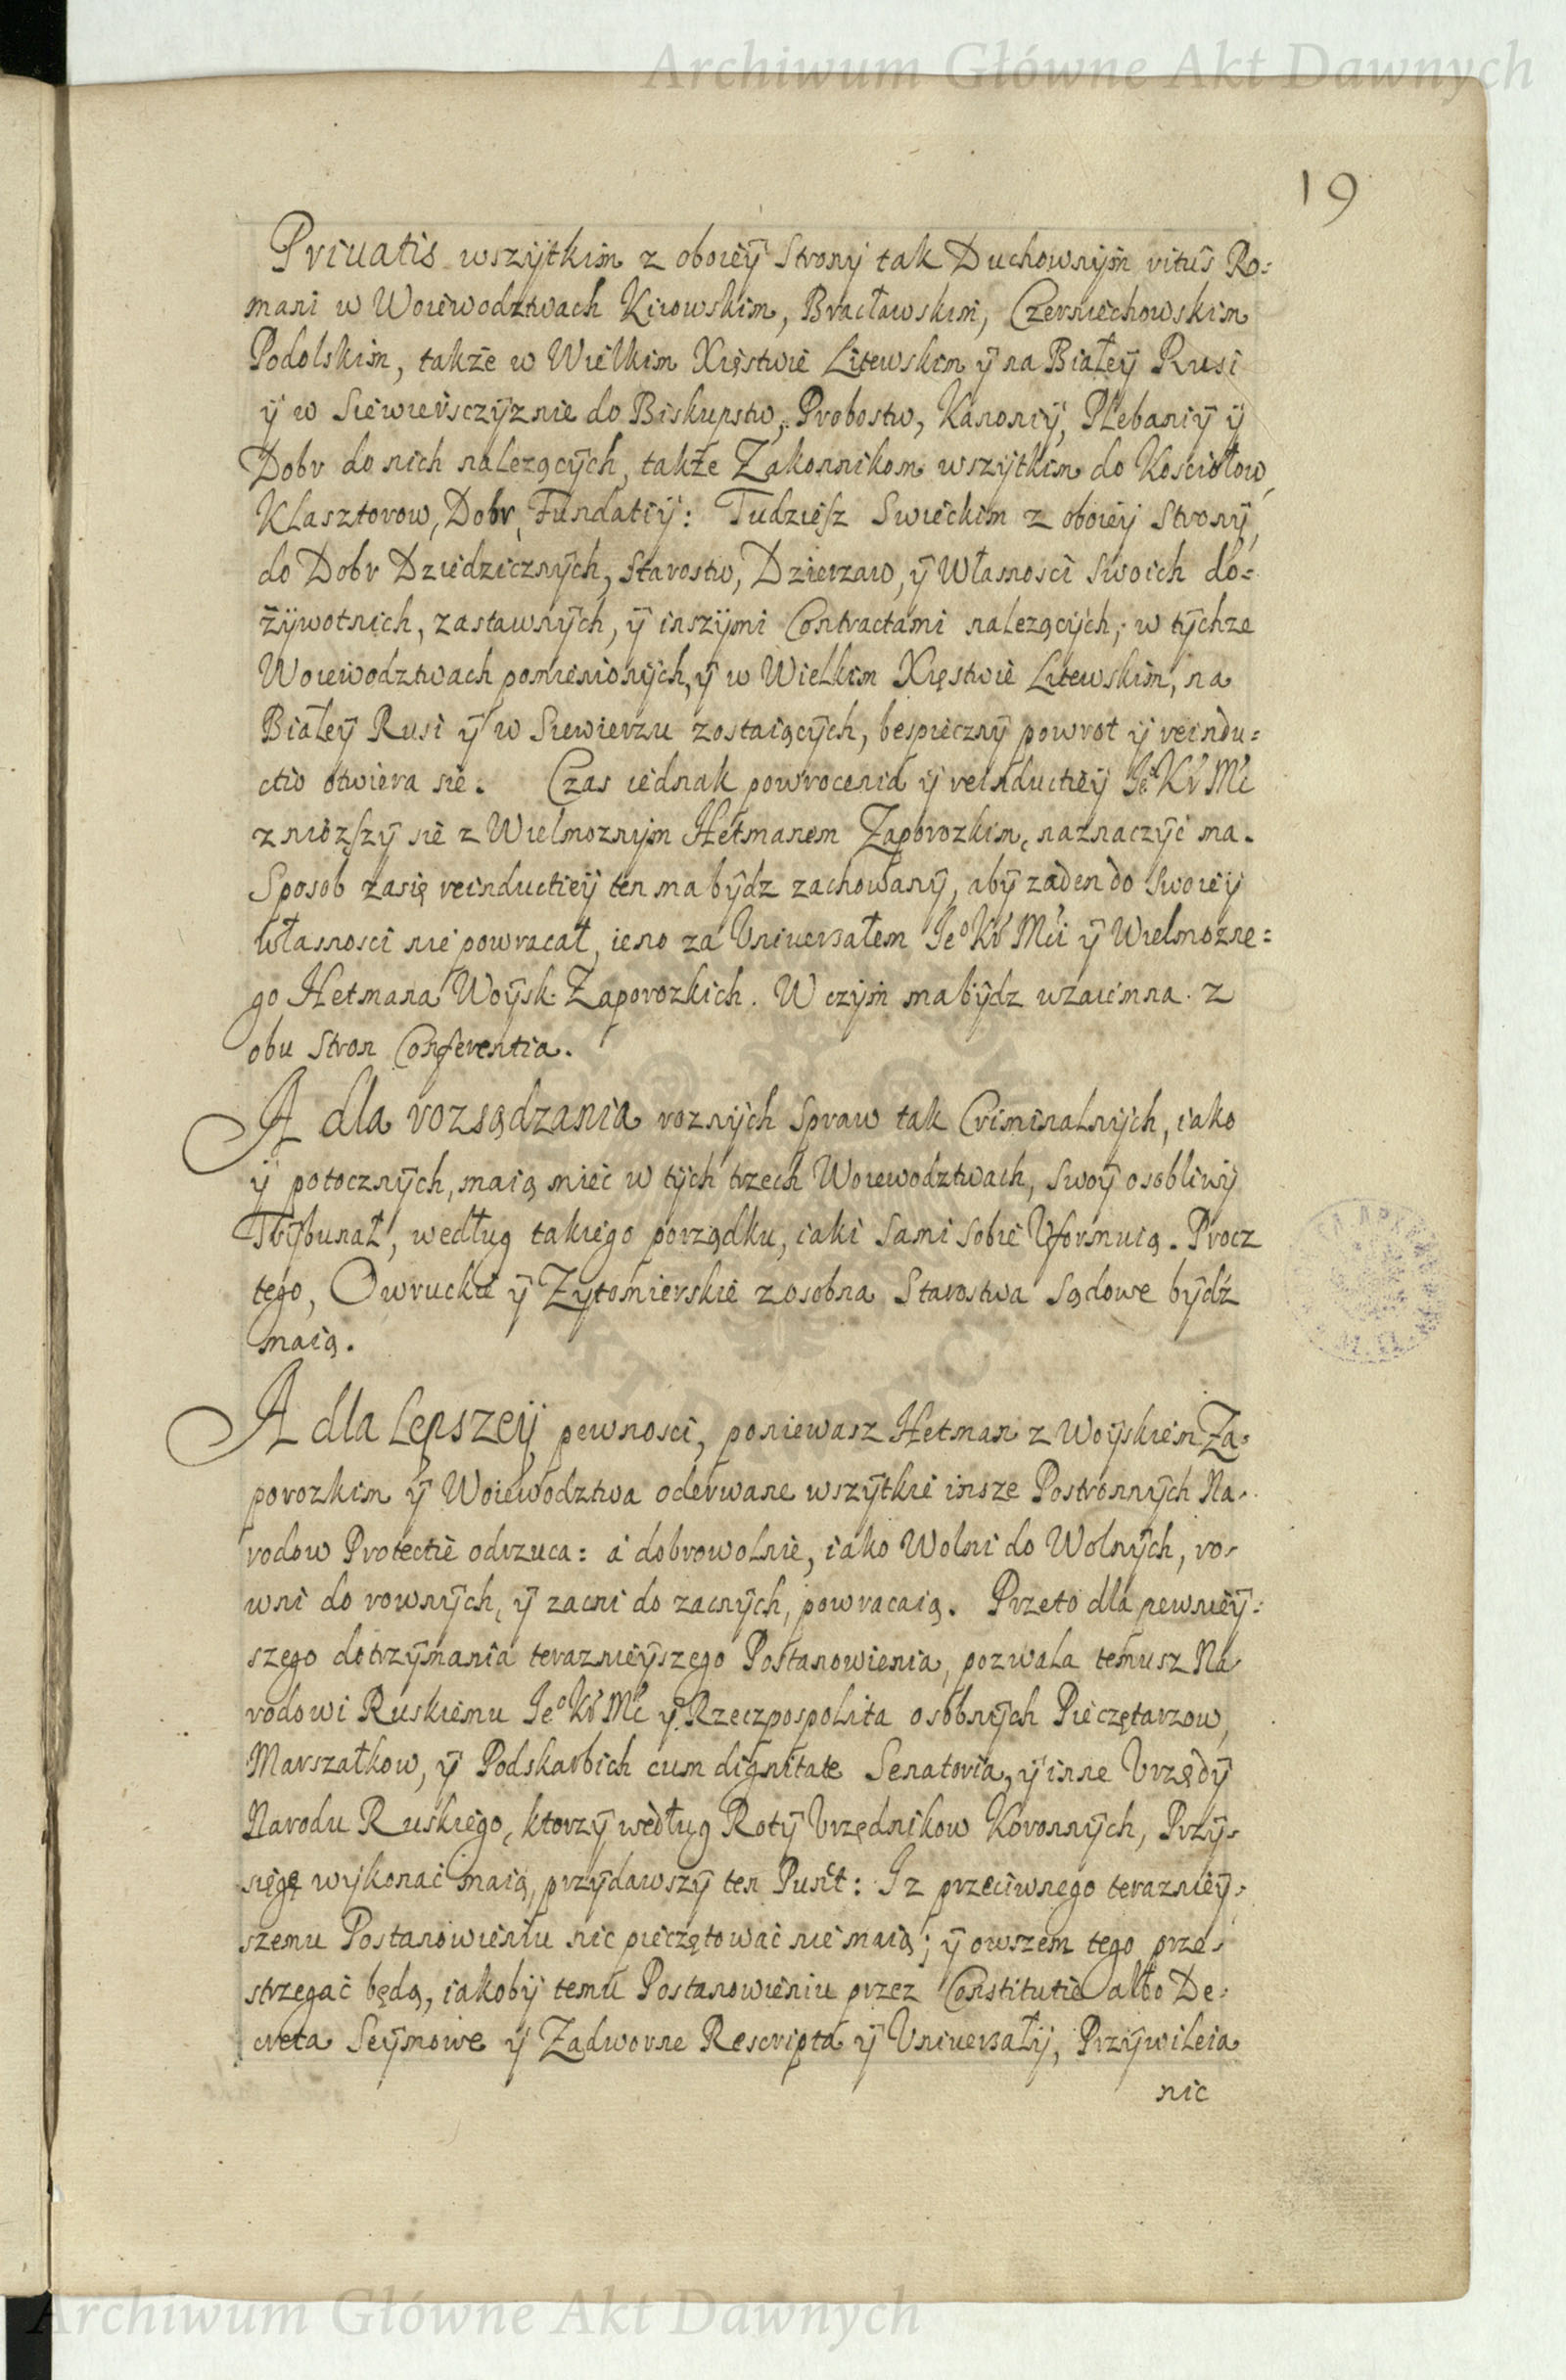 Archiwum Główne Akt Dawnych
19
Priuatis wszytkim z oboiey Strony tak Duchownym ritus Ro=
mani w Woiewodztwach Kiiowskim, Bracławskim, Czerniechowskim
Podolskim, także w Wielkim Xięstwie Litewskim y na Białey Rusi
y w Siewiersczyznie do Biskupstw, Probostw, Kanoniy, Plebaniy y
Dobr do nich nalezących, także Zakonnikom wszytkim do Kosciołow,
Klasztorow, Dobr, Fundatiy: Tudziesz Swieckim z oboiey Strony,
do Dobr Dziedzicznych, Starostw, Dzierzaw, y Własnosci Swoich do=
żywotnich, zastawnych, y inszymi Contractami nalezących, w tychze
Woiewodztwach pomienionych, y w Wielkim Xięstwie Litewskim, na
Białey Rusi y w Siewierzu zostaiących, bespieczny powrot y reindu=
ctio otwiera sie. Czas iednak powrocenia y reinductiey Ie° Kr Mc
zniozszy sie z Wielmoznym Hetmanem Zaporozkim, naznaczyć ma.
Sposob zasię reinductiey ten ma bydz zachowany, aby zaden do Swoiey
Własnosci nie powracał, ieno za Uniuersałem Ie° Kr Mci y Wielmozne=
go Hetmana Woysk Zaporozkich. W czym ma bydz wzaiemna z
obu Stron Conferentia.
A dla rozsądzania roznych Spraw tak Criminalnych, iako
y potocznych, maią mieć w tych trzech Woiewodztwach, Swoy osobliwy
Trybunał, według takiego porządku, iaki Sami Sobie Vformuią. Procz
tego, Owruckie y Zytomierskie zosobna Starostwa Sądowe bydź
maią.
A dla Lepszey pewnosci, poniewasz Hetman z Woyskiem Za=
porozkim y Woiewodztwa oderwane wszytkie insze Postronnych Na=
rodow Protectie odrzuca: a dobrowolnie, iako Wolni do Wolnych, ro=
wni do rownych, y zacni do zacnych, powracaią. Przeto dla pewniey=
szego dotrzymania teraznieyszego Postanowienia, pozwala temusz Na
rodowi Ruskiemu Ie° Kr Mc y Rzeczpospolita osobnych Pieczętarzow,
Marszałkow, y Podskarbich cum dignitate Senatoria, y inne Vrzędy
Narodu Ruskiego, ktorzy według Roty Vrzędnikow Koronnych, Przy=
sięgę wykonać maią, przydawszy ten Punct: Iz przeciwnego terazniey=
szemu Postanowieniu nic pieczętować nie maią; y owszem tego prze=
strzegać będą, iakoby temu Postanowieniu przez Constitutie albo De=
creta Seymowe y Zadworne Rescripta y Uniuersały, Przywileia
nic
Archiwum Główne Akt Dawnych